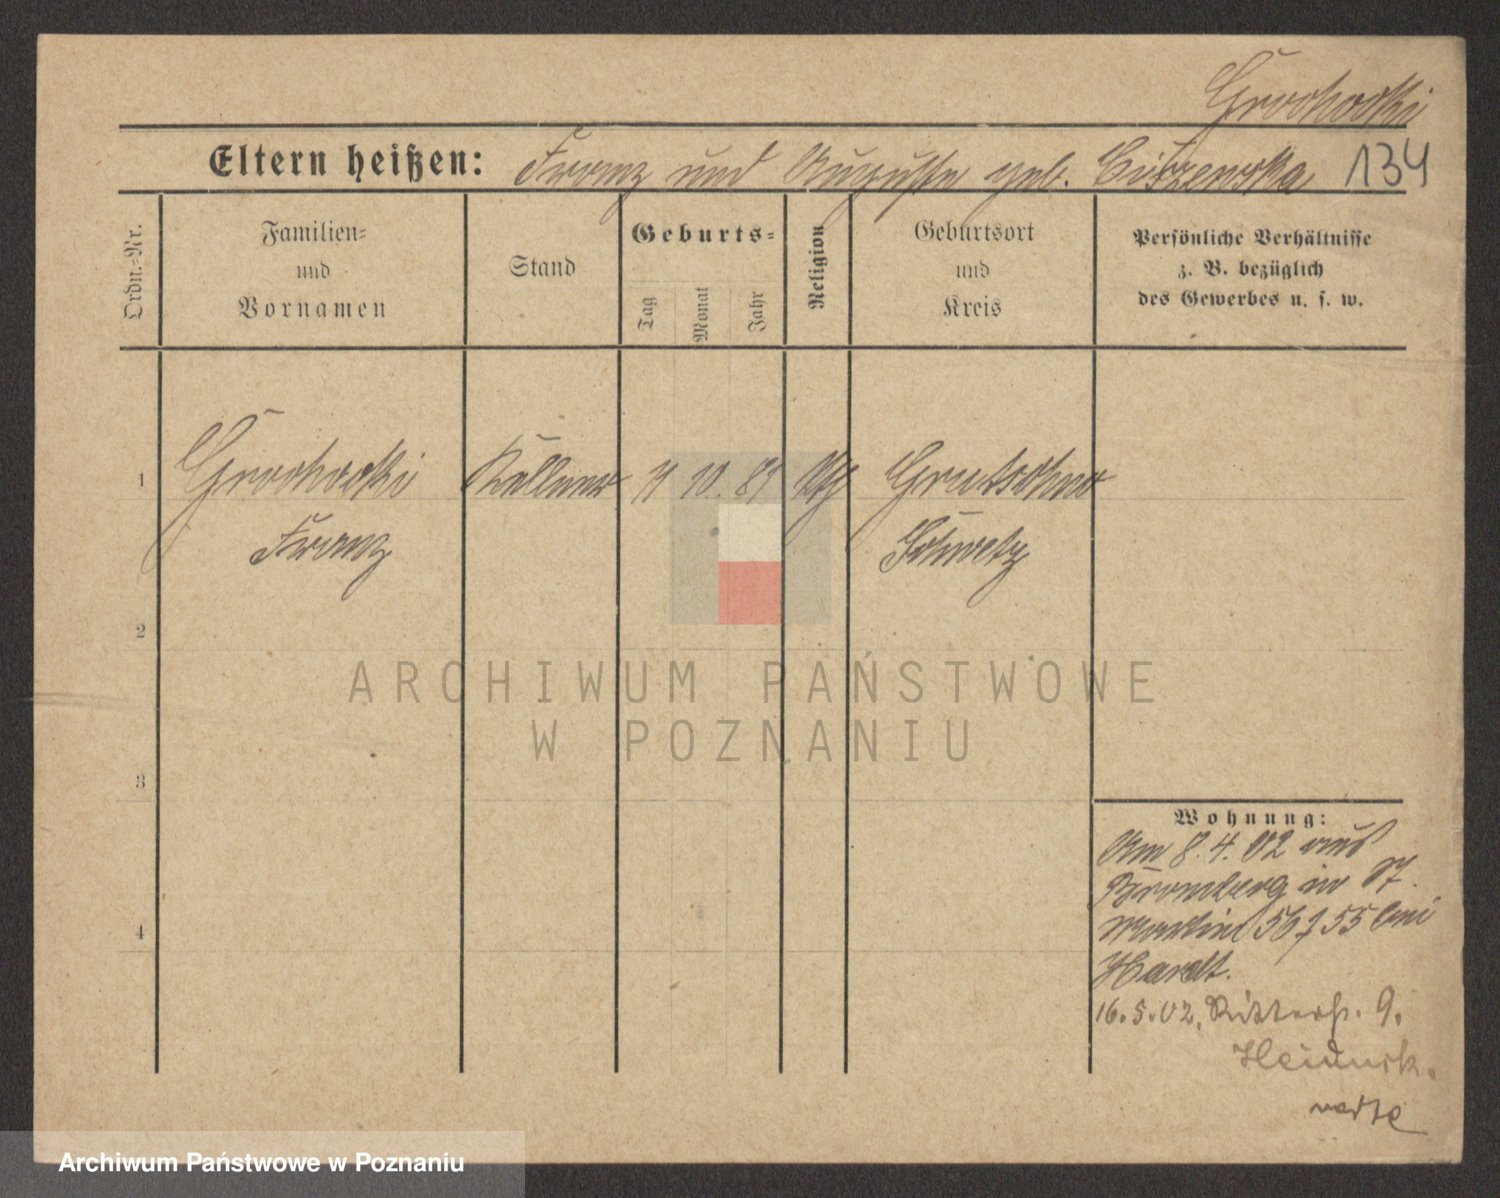 Grochocki
Eltern heißen: Franz und Auguste geb. Ciszewska 134
Ordn.-Nr.
Familien-
und
Vornamen
Stand
Geburts-
Tag
Monat
Jahr
Religion
Geburtsort
und
Kreis
Persönliche Verhältnisse
z. B. bezüglich
des Gewerbes u. s. w.
1 Grochocki Kellner 10. Grutschno
Franz Schwetz
2
ARCHIWUM PAŃSTWOWE
W POZNANIU
3
Wohnung:
Am 8.4.02 aus
Bromberg in St.
Martin 56/55 bei
4
Hardt.
16.5.02, Ritterstr. 9.
Archiwum Państwowe w Poznaniu